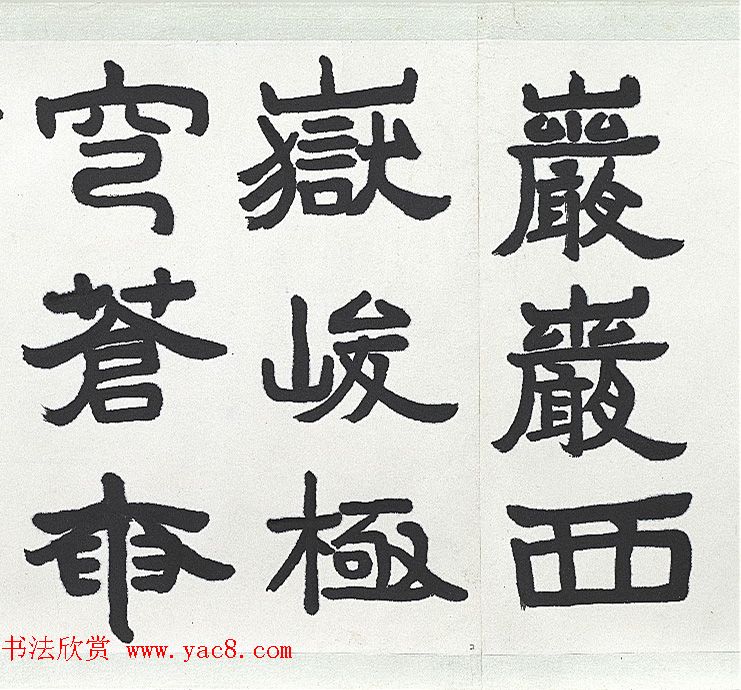 巖巖西
嶽峻極
穹蒼奄
书法欣赏 www.yac8.com